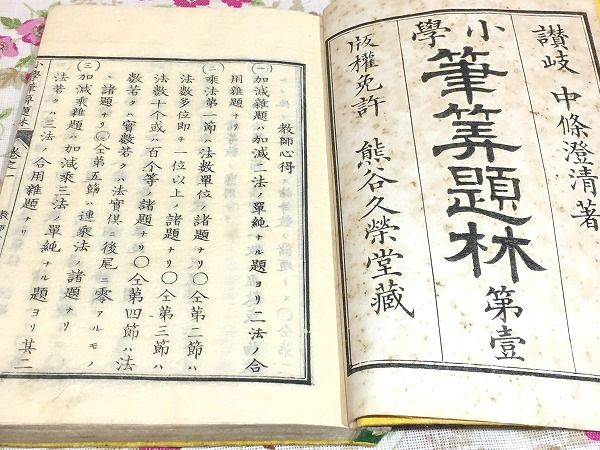 讃岐 中條澄清著
小學
筆算題林 第壹
版權免許 熊谷久榮堂藏
教師心得
㈠加減雜題ハ加減二法ノ單純ナル題ヨリ二法ノ合
用雜題ナリ
㈡乘法第一節ハ法數單位ノ諸題ナリ〇仝第二節ハ
法數多位即チ一位以上ノ諸題ナリ〇仝第三節ハ
法數十個或ハ百個等ノ諸題ナリ〇仝第四節ハ法
數若クハ實數若クハ法實俱ニ後尾ニ零アルモノ
ノ諸題ナリ〇仝第五節ハ連乘法ノ諸題ナリ
㈢加減乘雜題ハ加減乘三法ノ單純ナル題ヨリ其二
法若クハ三法ノ合用雜題ナリ
小學筆算題林 卷之一